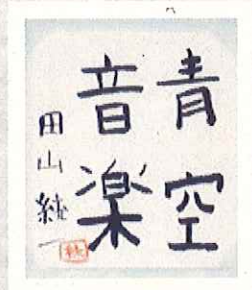 青空
音楽
田山純一